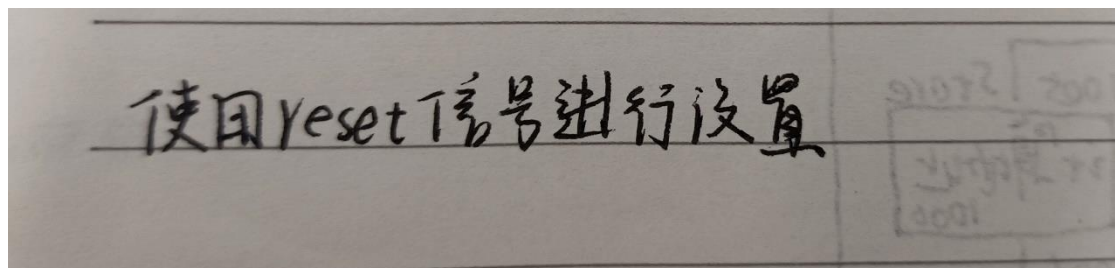 使用reset信号进行设置